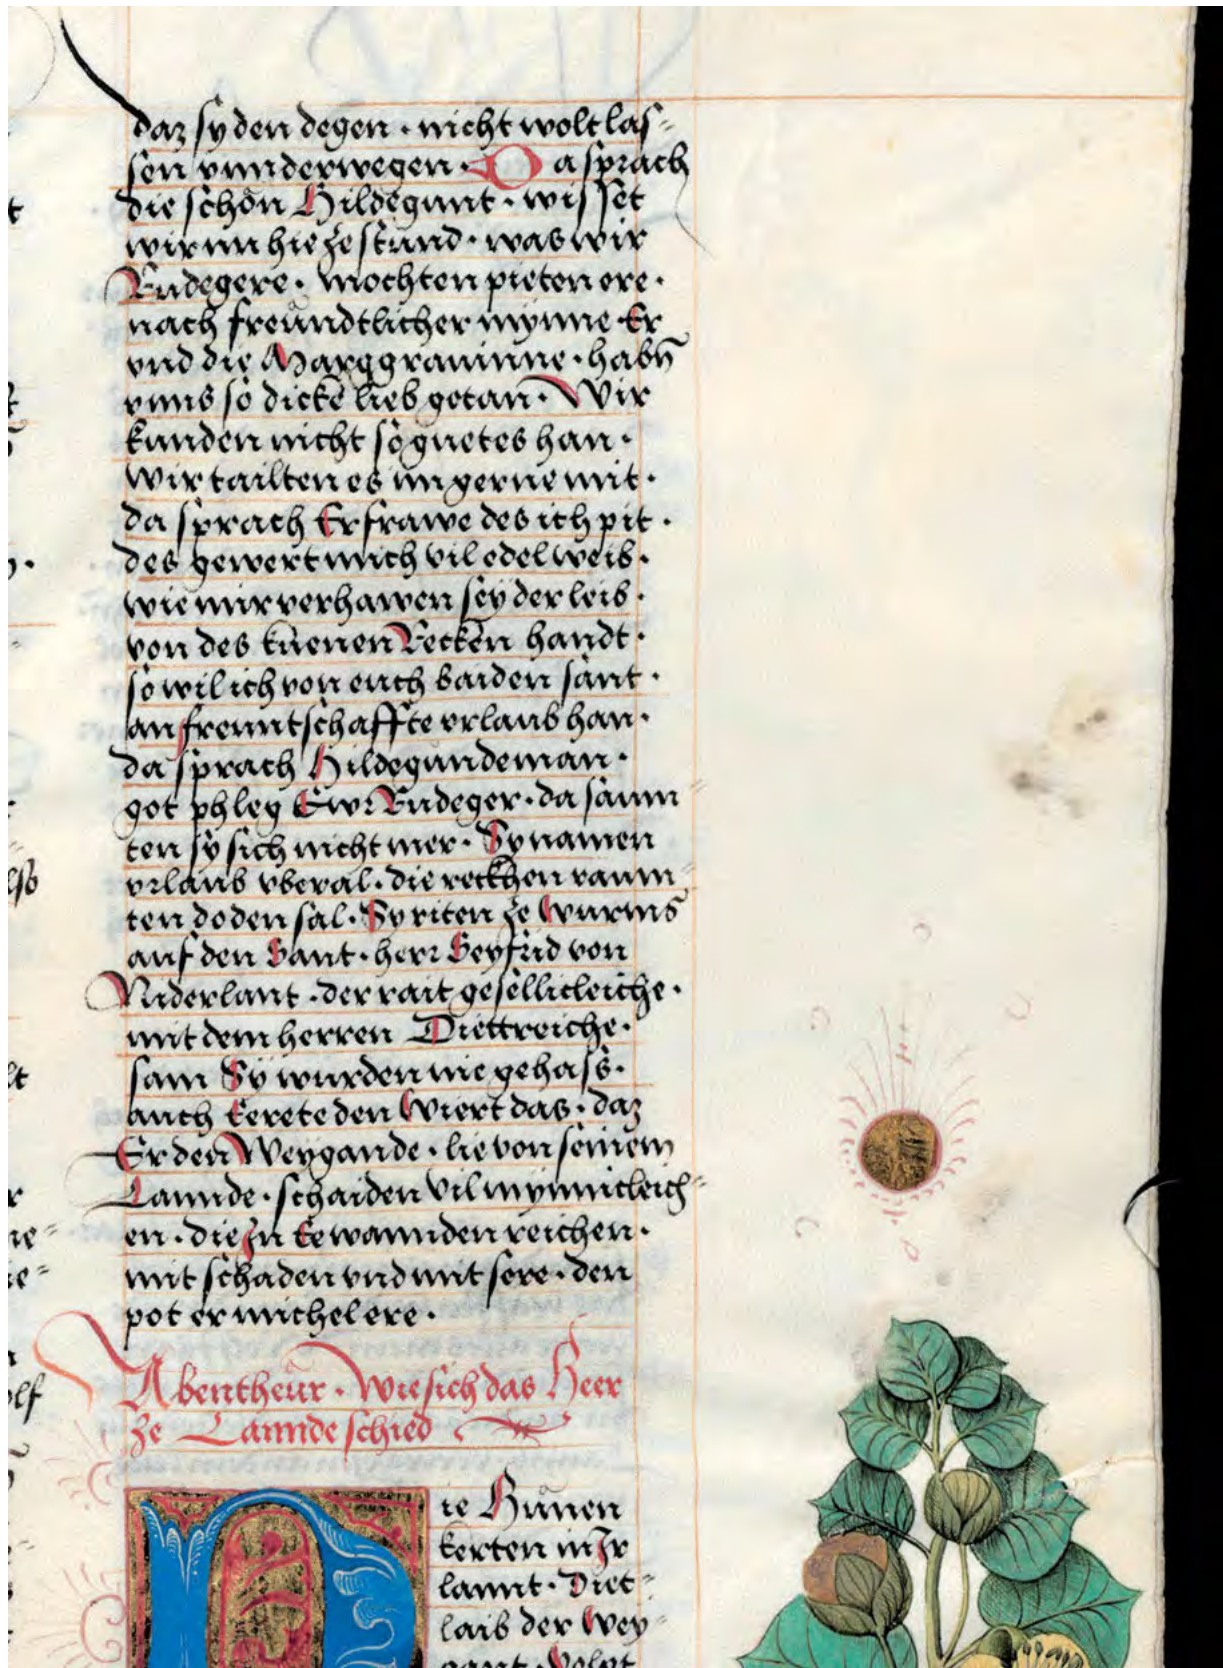 daz sy den degen · nicht wolt las⸗
sen vnnderwegen · Da sprach
die schön Hildegunt · wisset
wir nu hie ze stund · was wir
Rudegere · mochten pieten ere ·
nach freündtlicher mynne Er
vnd die Marggrauinne · habn̄
vnns so dicke lieb getan · Wir
kunden nicht so guetes han ·
wir tailten es im gerne mit ·
da sprach Er frawe des ich pit ·
des gewert mich vil edel weib ·
wie mir verhawen sey der leib ·
von des küenen Recken handt ·
so wil ich von euch baiden sant ·
an freuntschaffte vrlaub han ·
da sprach Hildegunde man ·
got phleg Ewr Rudeger · da saum⸗
ten sy sich nicht mer · Sy namen
vrlaub vberal · die reckhen raum⸗
ten do den sal · Sy riten ze Wurms
auf den Sant · herr Seyfrid von
Niderlant · der rait gesellicleiche ·
mit dem herren Diettreiche ·
sam Sy wurden nie gehass ·
auch kerete den Wiert das · daz
Er den Weygande · lie von seinem
Lannde · schaiden vil mynnicleich⸗
en · die In Ee wannden reichen ·
mit schaden vnd mit sere · den
pot er michel ere ·
Abentheür · Wie sich das Heer
ze Lannde schied
ie Hunen
kerten in Ir
lannt · Diet⸗
laib der Wey⸗
gant · Volgt